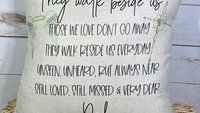 They walk beside us
THOSE WE LOVE DON'T GO AWAY
THEY WALK BESIDE US EVERYDAY,
UNSEEN, UNHEARD, BUT ALWAYS NEAR
STILL LOVED, STILL MISSED & VERY DEAR